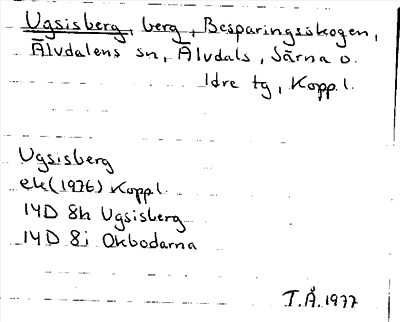 Ugsisberg, berg, Besparingsskogen,
Älvdalens sn, Älvdals, Särna o.
Idre tg, Kopp. l.
Ugsisberg
ek (1976) Kopp l.
14D 8h Ugsisberg
14D 8i Okbodarna
T.Å. 1977